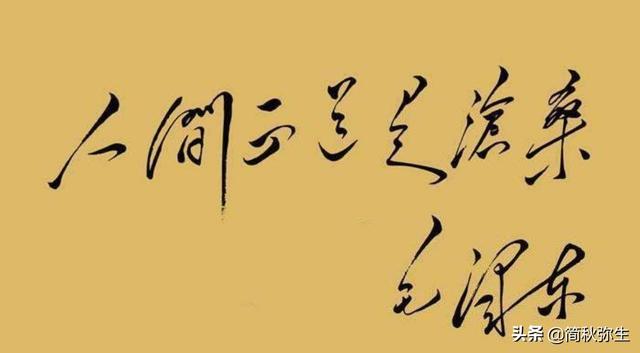 人间正道是滄桑
毛泽东
头条 @简秋弥生